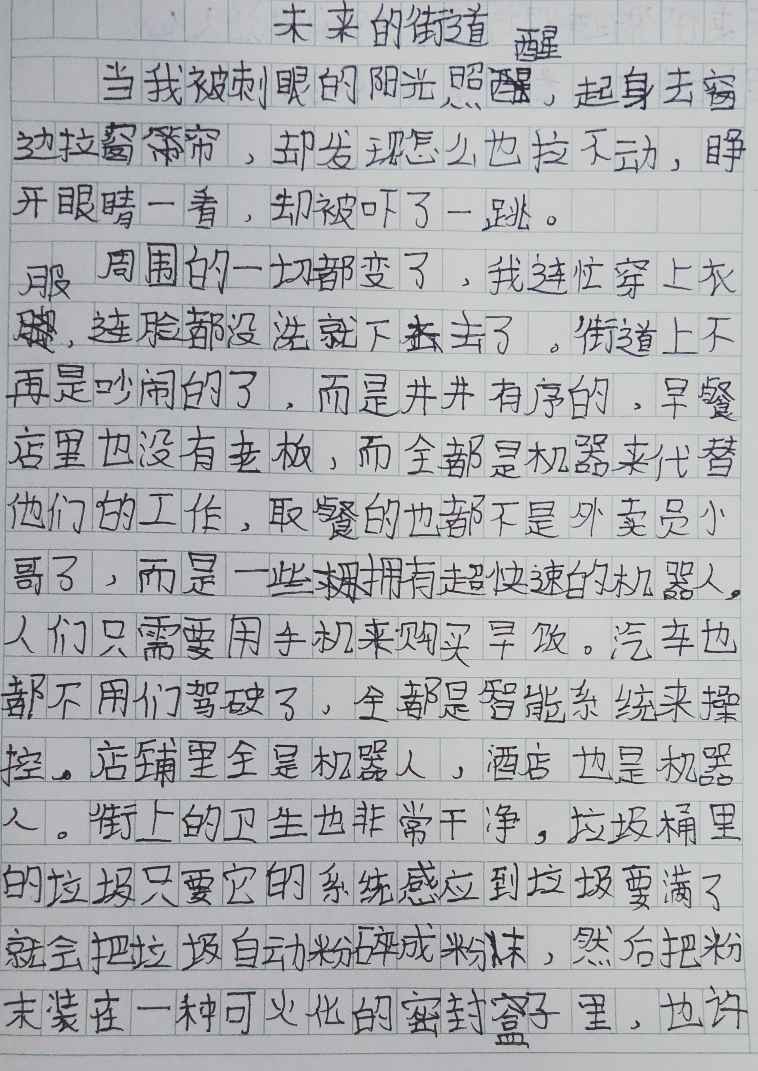 未来的街道
醒
当我被刺眼的阳光照醒，起身去窗
边拉窗帘，却发现怎么也拉不动，睁
开眼睛一看，却被吓了一跳。
周围的一切都变了，我连忙穿上衣
服
，连脸都没洗就下去了。街道上不
再是吵闹的了，而是井井有序的，早餐
店里也没有老板，而全都是机器来代替
他们的工作，取餐的也都不是外卖员小
哥了，而是一些拥有超快速的机器人。
人们只需要用手机来购买早饭。汽车也
都不用们驾驶了，全都是智能系统来操
控。店铺里全是机器人，酒店也是机器
人。街上的卫生也非常干净，垃圾桶里
的垃圾只要它的系统感应到垃圾要满了
就会把垃圾自动粉碎成粉沫，然后把粉
末装在一种可火化的密封盒子里，也许